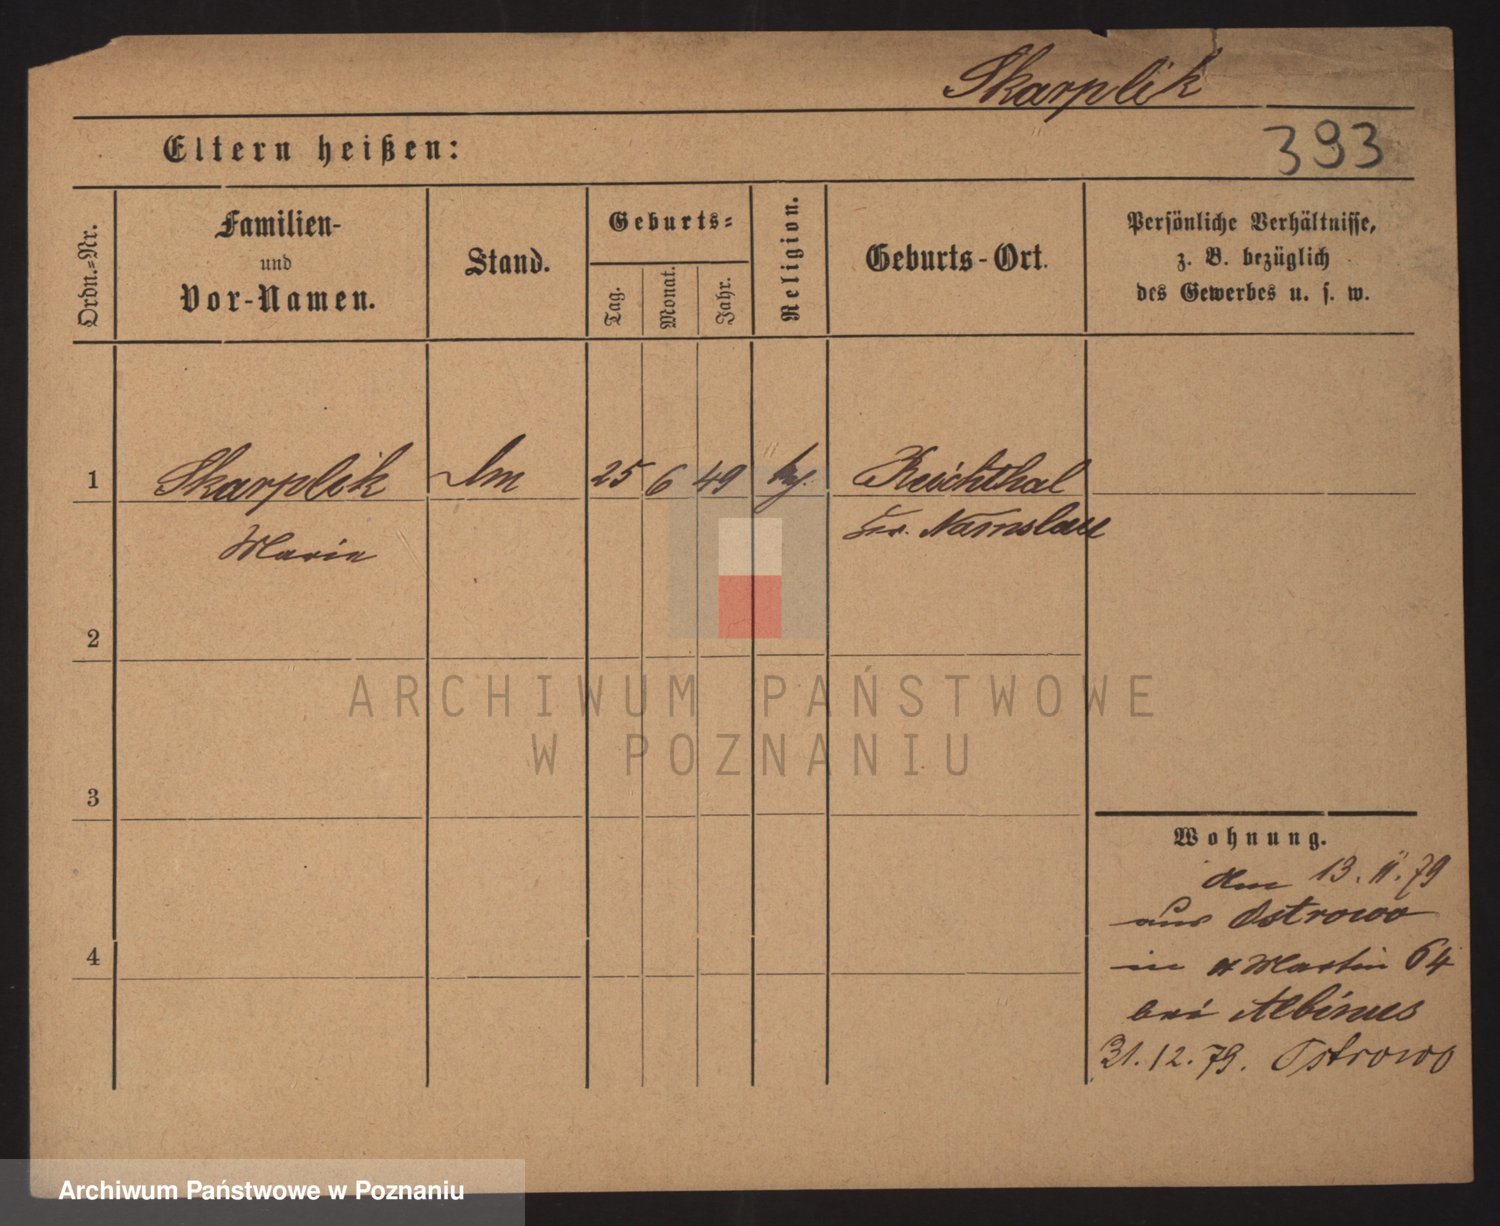 Skarplik
Eltern heißen:
393
Ordn.-Nr.
Familien-
und
Vor-Namen.
Stand.
Geburts-
Tag.
Monat.
Jahr.
Religion.
Geburts-Ort.
Persönliche Verhältnisse,
z. B. bezüglich
des Gewerbes u. s. w.
1 Skarplik 25 6 49 Reichthal
Marie Namslau
2
ARCHIWUM PAŃSTWOWE
W POZNANIU
3
Wohnung.
13. 11. 79
aus Ostrowo
4
in St Martin 64
bei Albinus
31. 12. 79. Ostrowo
Archiwum Państwowe w Poznaniu